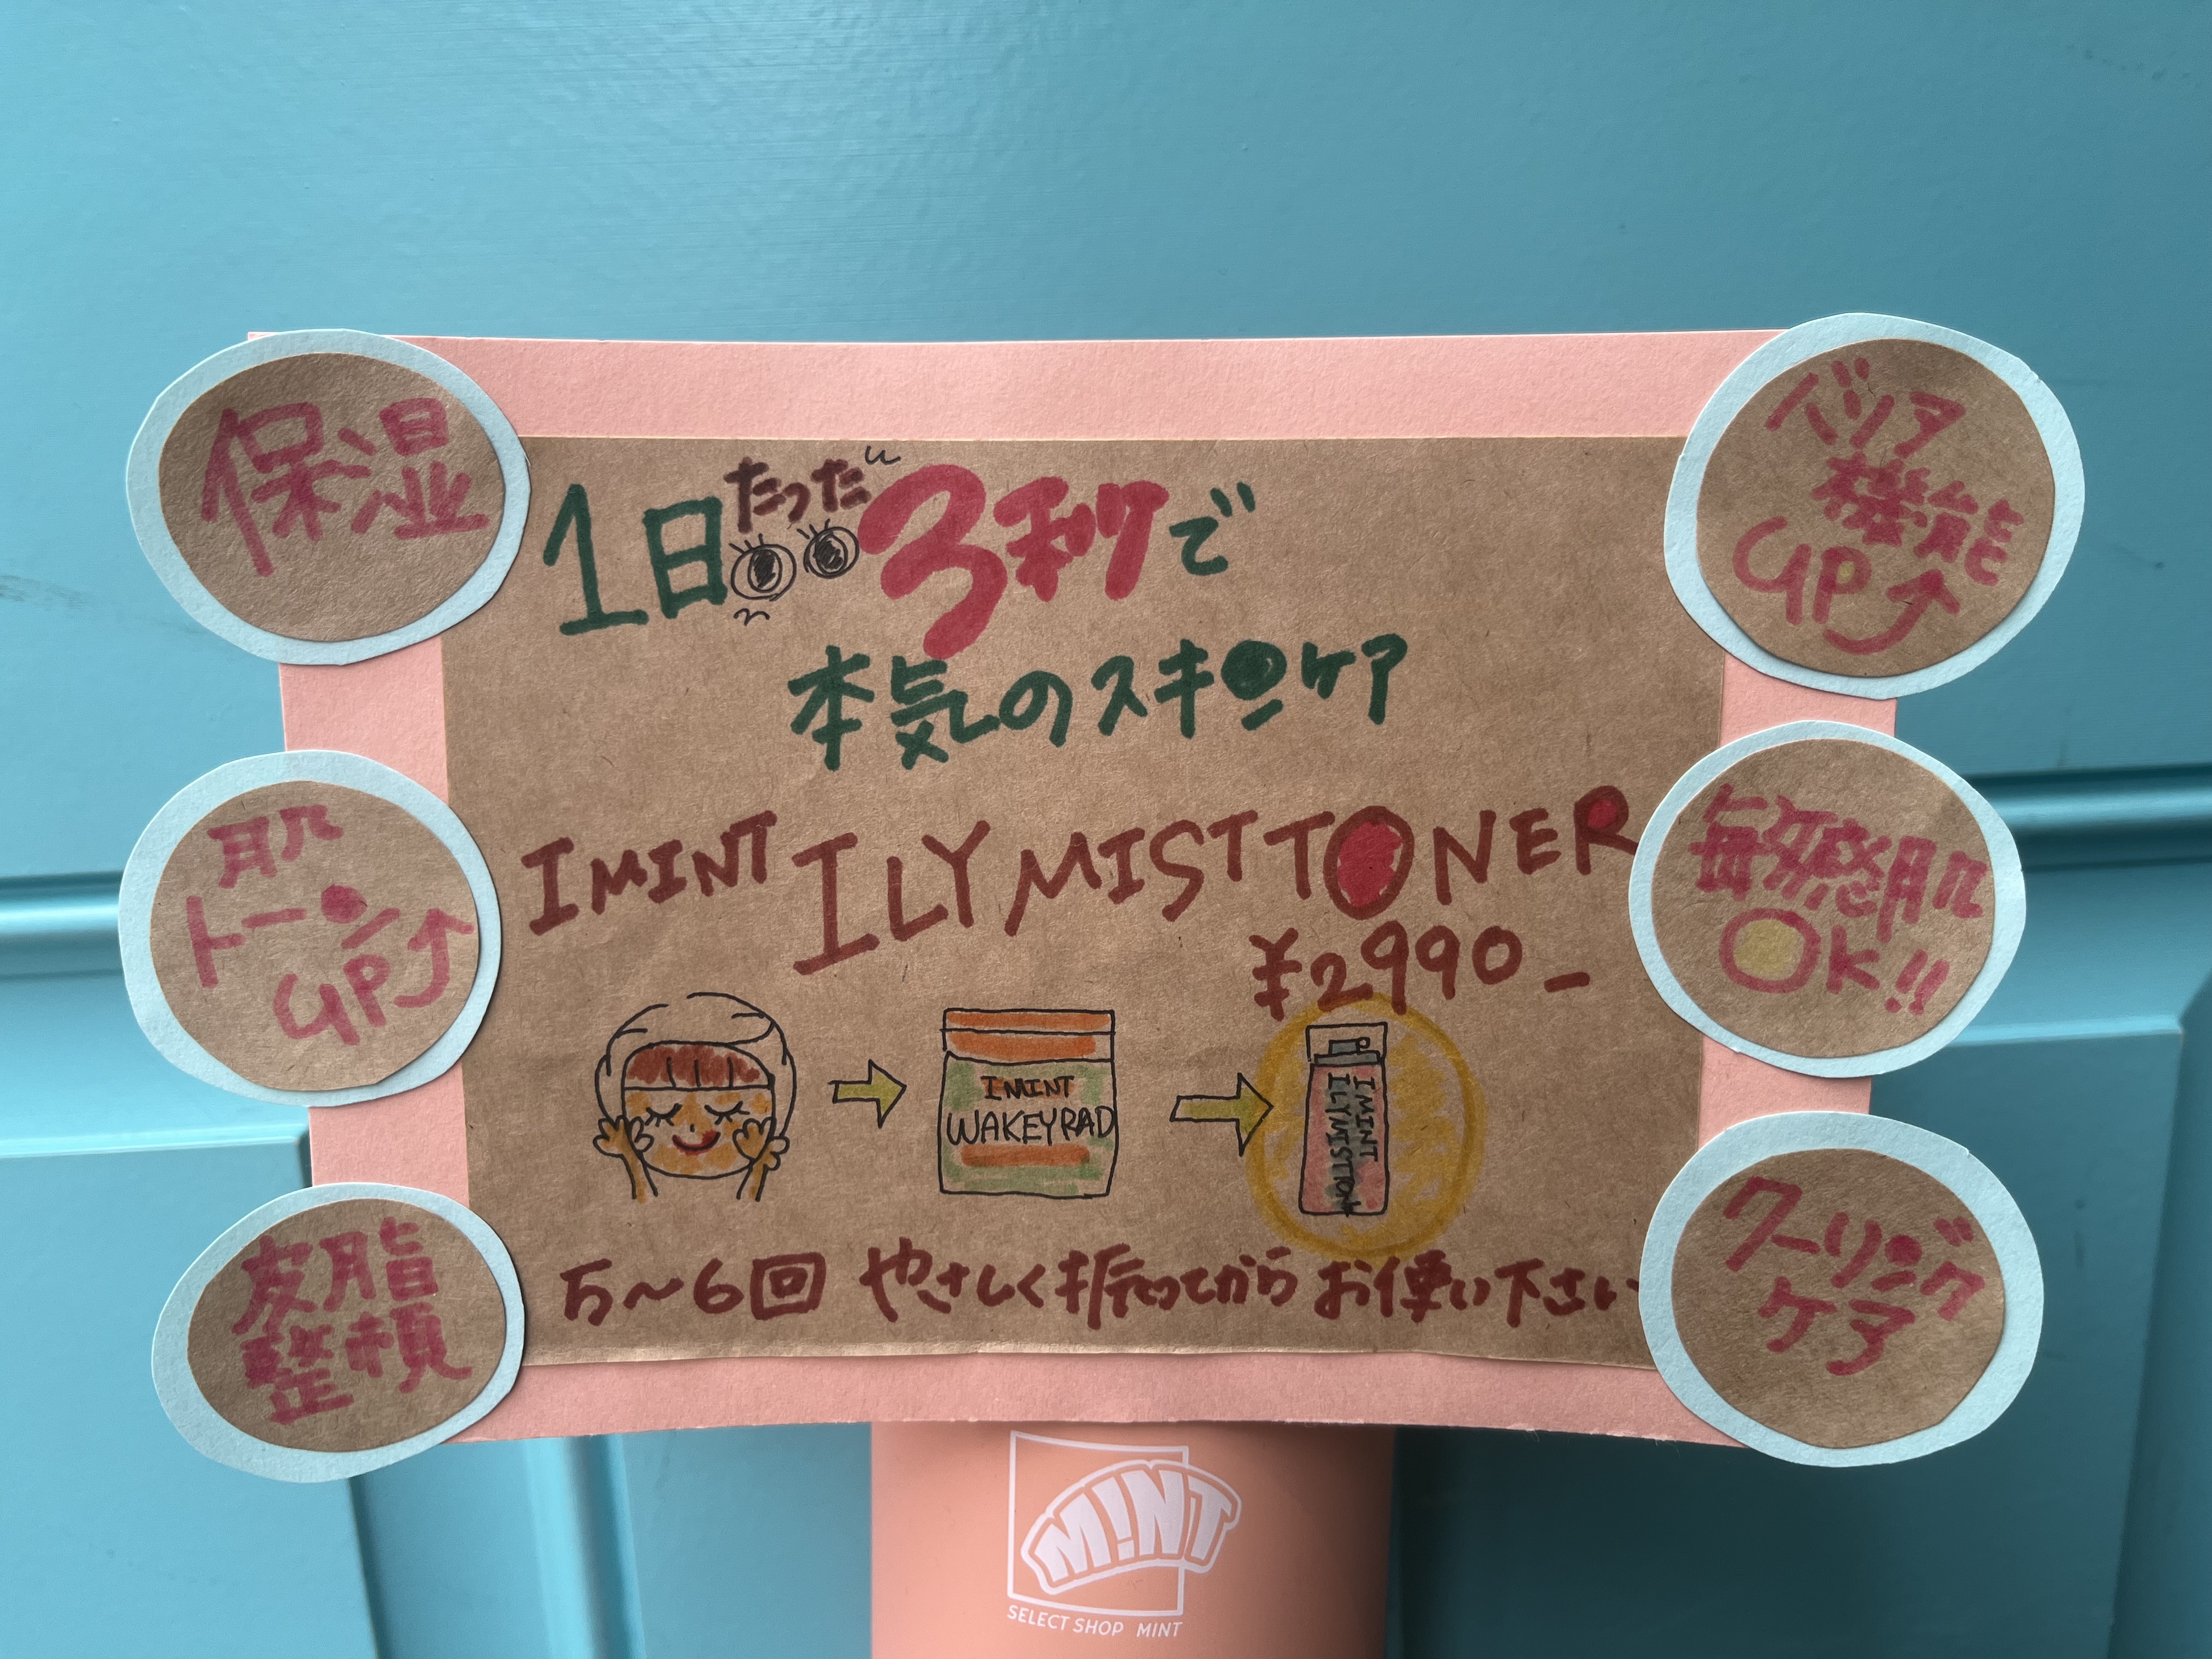 保湿
肌
トーン
UP
皮脂
整頓
1日たった3秒で
本気のスキンケア
IMINT ILY MIST TONER
¥2990-
IMINT
WAKEYPAD
IMINT
ILY MIST TONER
5～6回 やさしく振ってから お使い下さい
バリア
機能
UP
敏感肌
OK!!
クーリング
ケア
M!NT
SELECT SHOP MINT